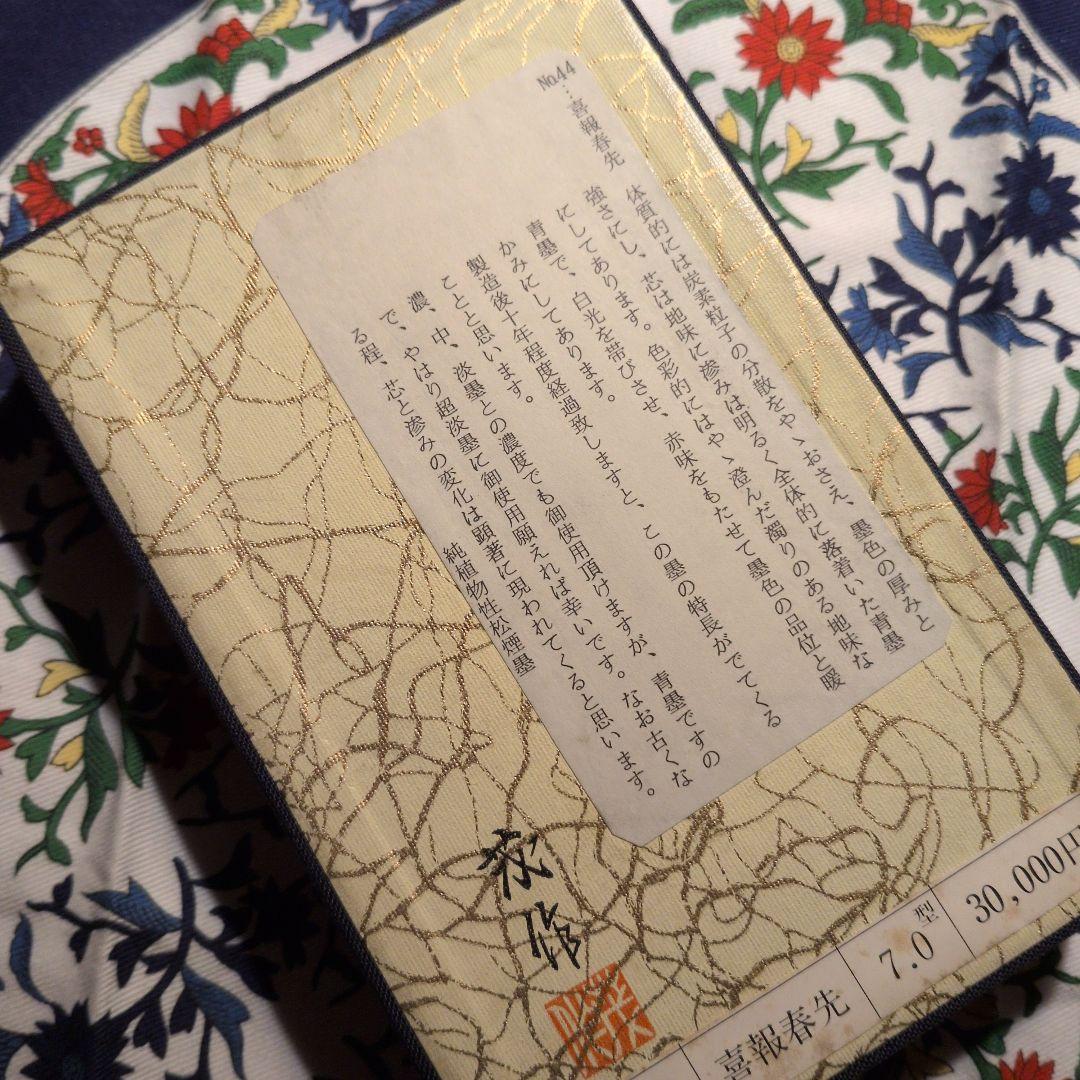 No.44…喜報春先
体質的には炭素粒子の分散をやゝおさえ、墨色の厚みと
強さにし、芯は地味に滲みは明るく全体的に落着いた青墨
にしてあります。色彩的にはやゝ澄んだ濁りのある地味な
青墨で、白光を帯びさせ、赤味をもたせて墨色の品位と暖
かみにしてあります。
製造後十年程度経過致しますと、この墨の特長がでてくる
ことと思います。
濃、中、淡墨との濃度でも御使用頂けますが、青墨ですの
で、やはり超淡墨に御使用願えれば幸いです。なお古くな
る程、芯と滲みの変化は顕著に現われてくると思います。
純植物性松煙墨
喜報春先
7.0型
30,000円